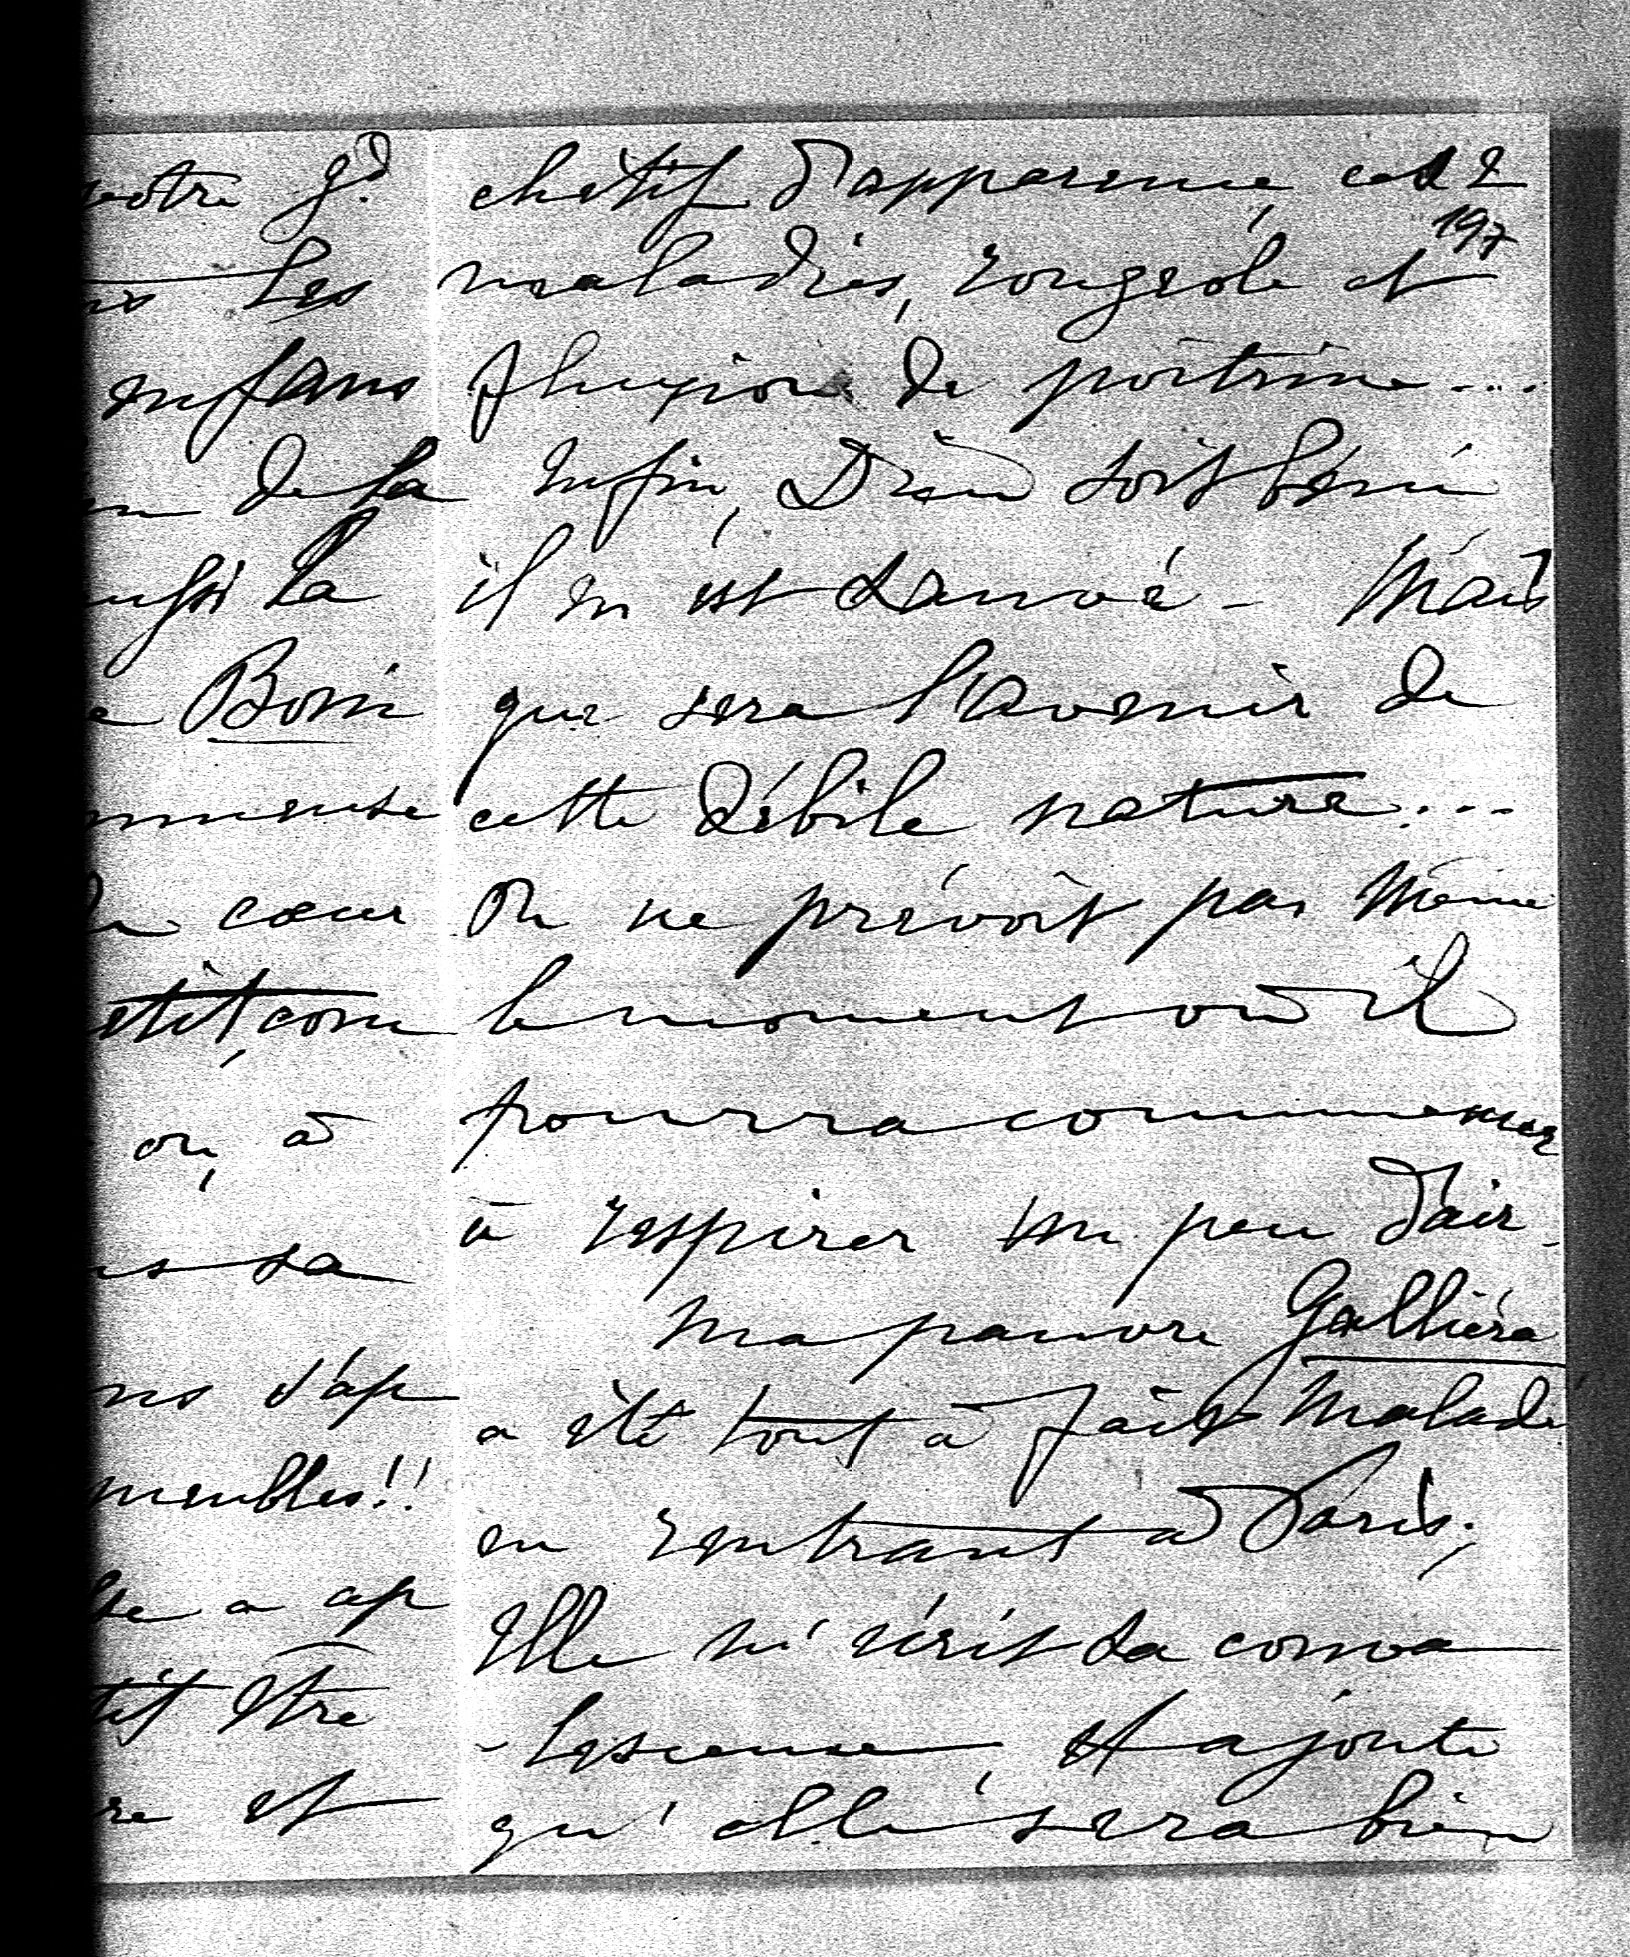 votre gd
les
enfans
de la
aussi la
Boni
immense
cœur
petit, com
on, à
sa
d'ap
meubles!!
a ap
être
et
chétif d'apparence, ces 2
197
maladies, rougeole et
fluxion de poitrine....
enfin, Dieu soit béni
il en est sauvé - Mais
que sera l'avenir de
cette débile nature...
On ne prévoit pas même
le moment où il
pourra commencer
à respirer un peu d'air -
Ma pauvre Galliéra
a été tout à fait malade
en rentrant à Paris;
Elle m'écrit sa conva
- lescence, et ajoute
qu'elle sera bien